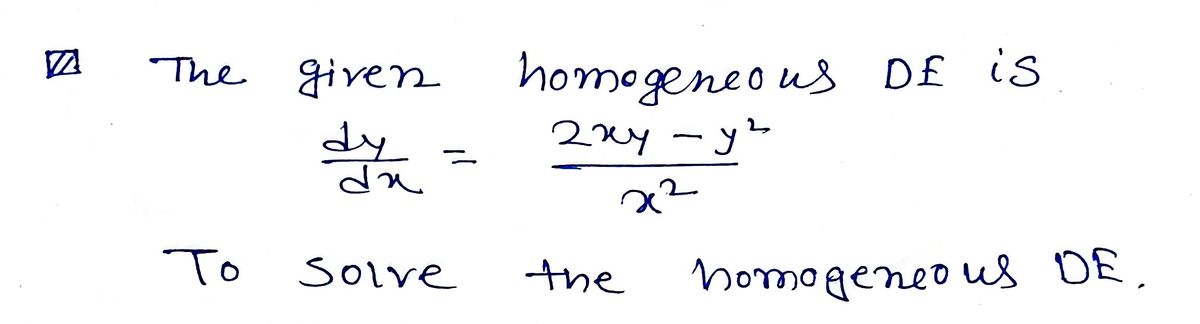 The given homogeneous DE is
dy/dx = (2xy - y²)/x²
To solve the homogeneous DE.